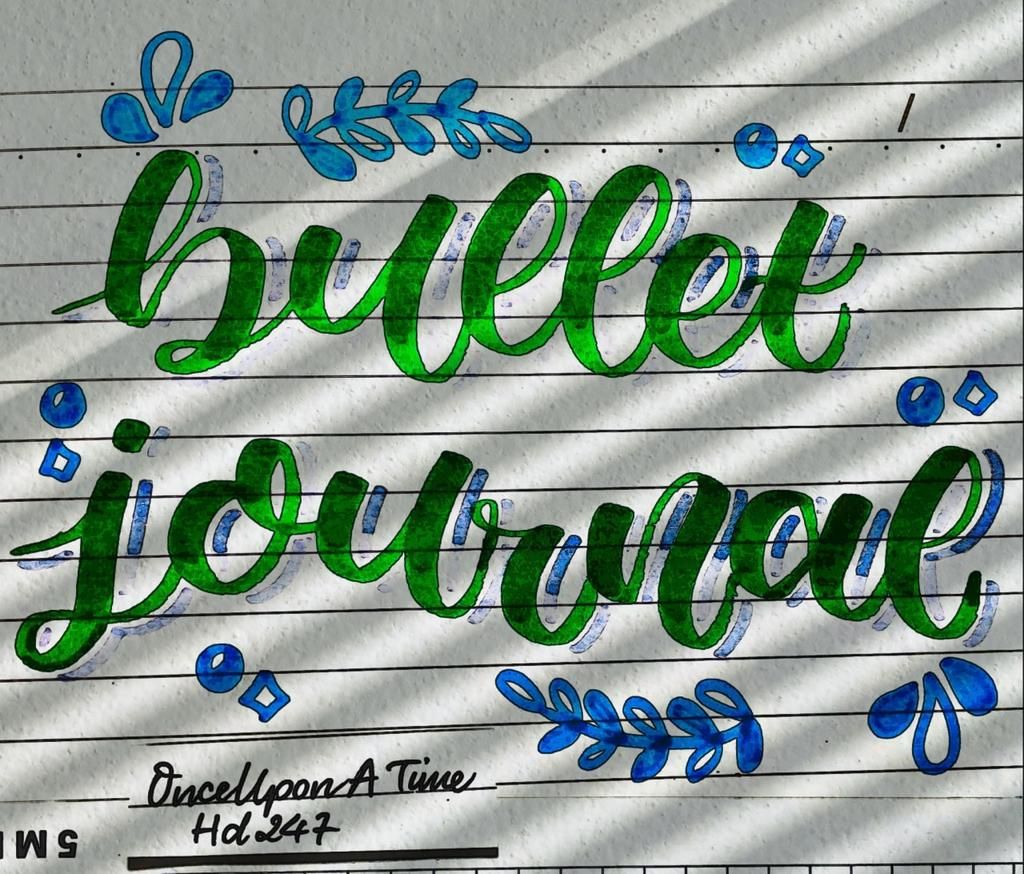 bullet
journal
OnceUpon A Time
Hd 247
5M